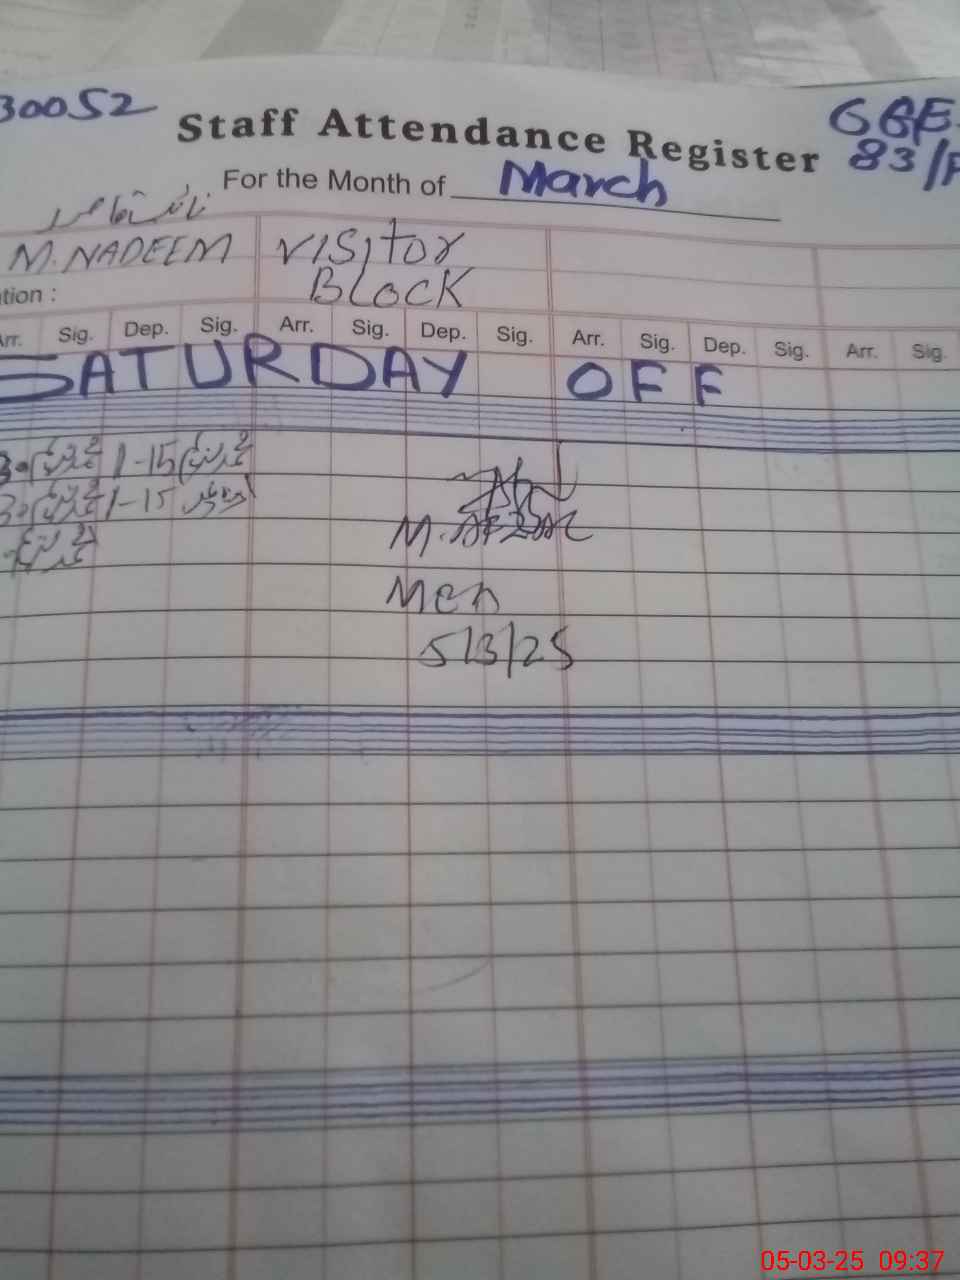 30052
Staff Attendance Register
GGE
83/P
For the Month of March
M. NADEEM VISITOR
BLOCK
tion :
Arr. Sig. Dep. Sig. Arr. Sig. Dep. Sig. Arr. Sig. Dep. Sig. Arr. Sig.
SATURDAY OFF
1-15
1-15
M. AFZAL
MEA
5/3/25
05-03-25 09:37